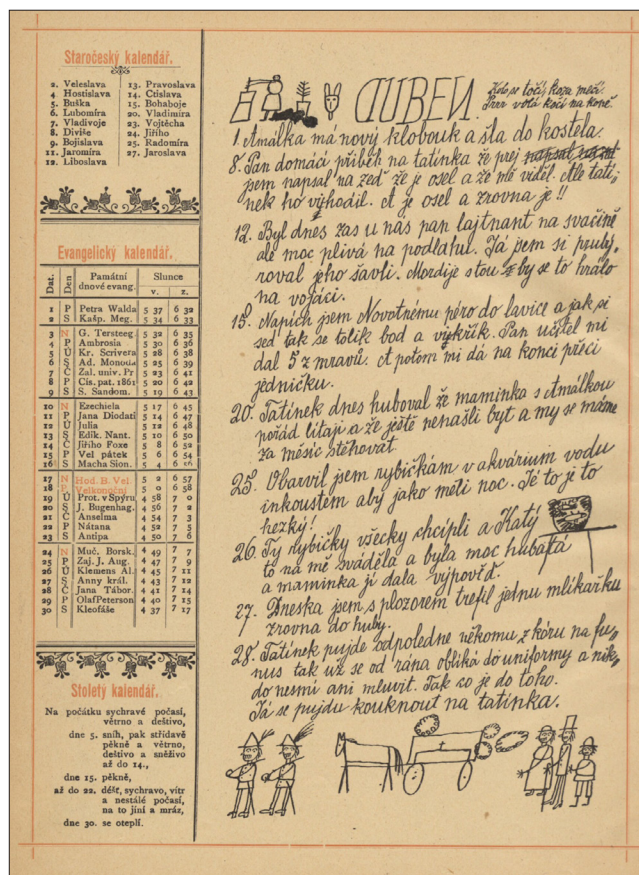 Staročeský kalendář.
2. Veleslava
4. Hostislava
5. Buška
6. Lubomíra
7. Vladivoje
8. Diviše
9. Bojislava
11. Jaromíra
12. Liboslava
13. Pravoslava
14. Ctislava
15. Bohaboje
20. Vladimíra
23. Vojtěcha
24. Jiřího
25. Radomíra
27. Jaroslava
Evangelický kalendář.
Dat. Den Památní dnové evang. Slunce
v. z.
1 P Petra Walda 5 37 6 32
2 S Kašp. Meg. 5 34 6 33
3 N G. Tersteeg. 5 32 6 35
4 P Ambrosia 5 30 6 36
5 Ú Kr. Scrivera 5 28 6 38
6 S Ad. Monoda 5 25 6 39
7 Č Zal. univ. Pr 5 23 6 41
8 P Cís. pat. 1861 5 20 6 42
9 S S. Sandom. 5 19 6 43
10 N Ezechiela 5 17 6 45
11 P Jana Diodati 5 14 6 47
12 Ú Julia 5 12 6 48
13 S Edik. Nant. 5 10 6 50
14 Č Jiřího Foxe 5 8 6 52
15 P Vel pátek 5 6 6 54
16 S Macha Sion. 5 4 6 56
17 N Hod. B. Vel. 5 2 6 57
18 P Velkonoční 5 0 6 58
19 Ú Prot. v Spýru 4 58 7 0
20 S J. Bugenhag. 4 56 7 2
21 Č Anselma 4 54 7 3
22 P Nátana 4 52 7 5
23 S Antipa 4 50 7 6
24 N Muč. Borsk. 4 49 7 7
25 P Zaj. J. Aug. 4 47 7 9
26 Ú Klemens Al. 4 45 7 11
27 S Anny král. 4 43 7 12
28 Č Jana Tábor. 4 41 7 14
29 P Olaf Peterson 4 40 7 15
30 S Kleofáše 4 37 7 17
Stoletý kalendář.
Na počátku sychravé počasí,
větrno a deštivo,
dne 5. sníh, pak střídavě
pěkně a větrno,
deštivo a sněživo
až do 14.,
dne 15. pěkně,
až do 22. déšť, sychravo, vítr
a nestálé počasí,
na to jíní a mráz,
dne 30. se oteplí.
DUBEN.
Kolo se točí, koza mečí.
Prrr volá kočí na koně.
1. Amálka má nový klobouk a šla do kostela.
8. Pan domácí přiběh na tatínka že prej
jsem napsal na zeď že je osel a že mě viděl. Ale tatí„
nek ho vyhodil. A je osel a zrovna je !!
12. Byl dnes zas u nás pan lajtnant na svačině
ale moc plivá na podlahu. Já jsem si prubý„
roval jeho šavli. Mordije s tou z by se to hrálo
na vojáci.
15. Napích jsem Novotnému péro do lavice a jak si
sed tak se tolik bod a vykřik. Pan učitel mi
dal 5 z mravů. A potom mi dá na konci přeci
jedničku.
20. Tatínek dnes huboval že maminka s Amálkou
pořád lítají a že ještě nenašli byt a my se máme
za měsíc stěhovat.
25. Obarvil jsem rybičkám v akvárium vodu
inkoustem aby jako měli noc. Jé to je to
hezký!
26. Ty rybičky všecky chcípli a Katý
to na mě sváděla a byla moc hubatá
a maminka jí dala výpověď.
27. Dneska jsem s plozorem trefil jednu mlíkařku
zrovna do huby.
28. Tatínek pujde odpoledne někomu z kóru na fu„
nus tak už se od rána oblíká do uniformy a nik„
do nesmí ani mluvit. Tak co je do toho.
Já se pujdu kouknout na tatínka.